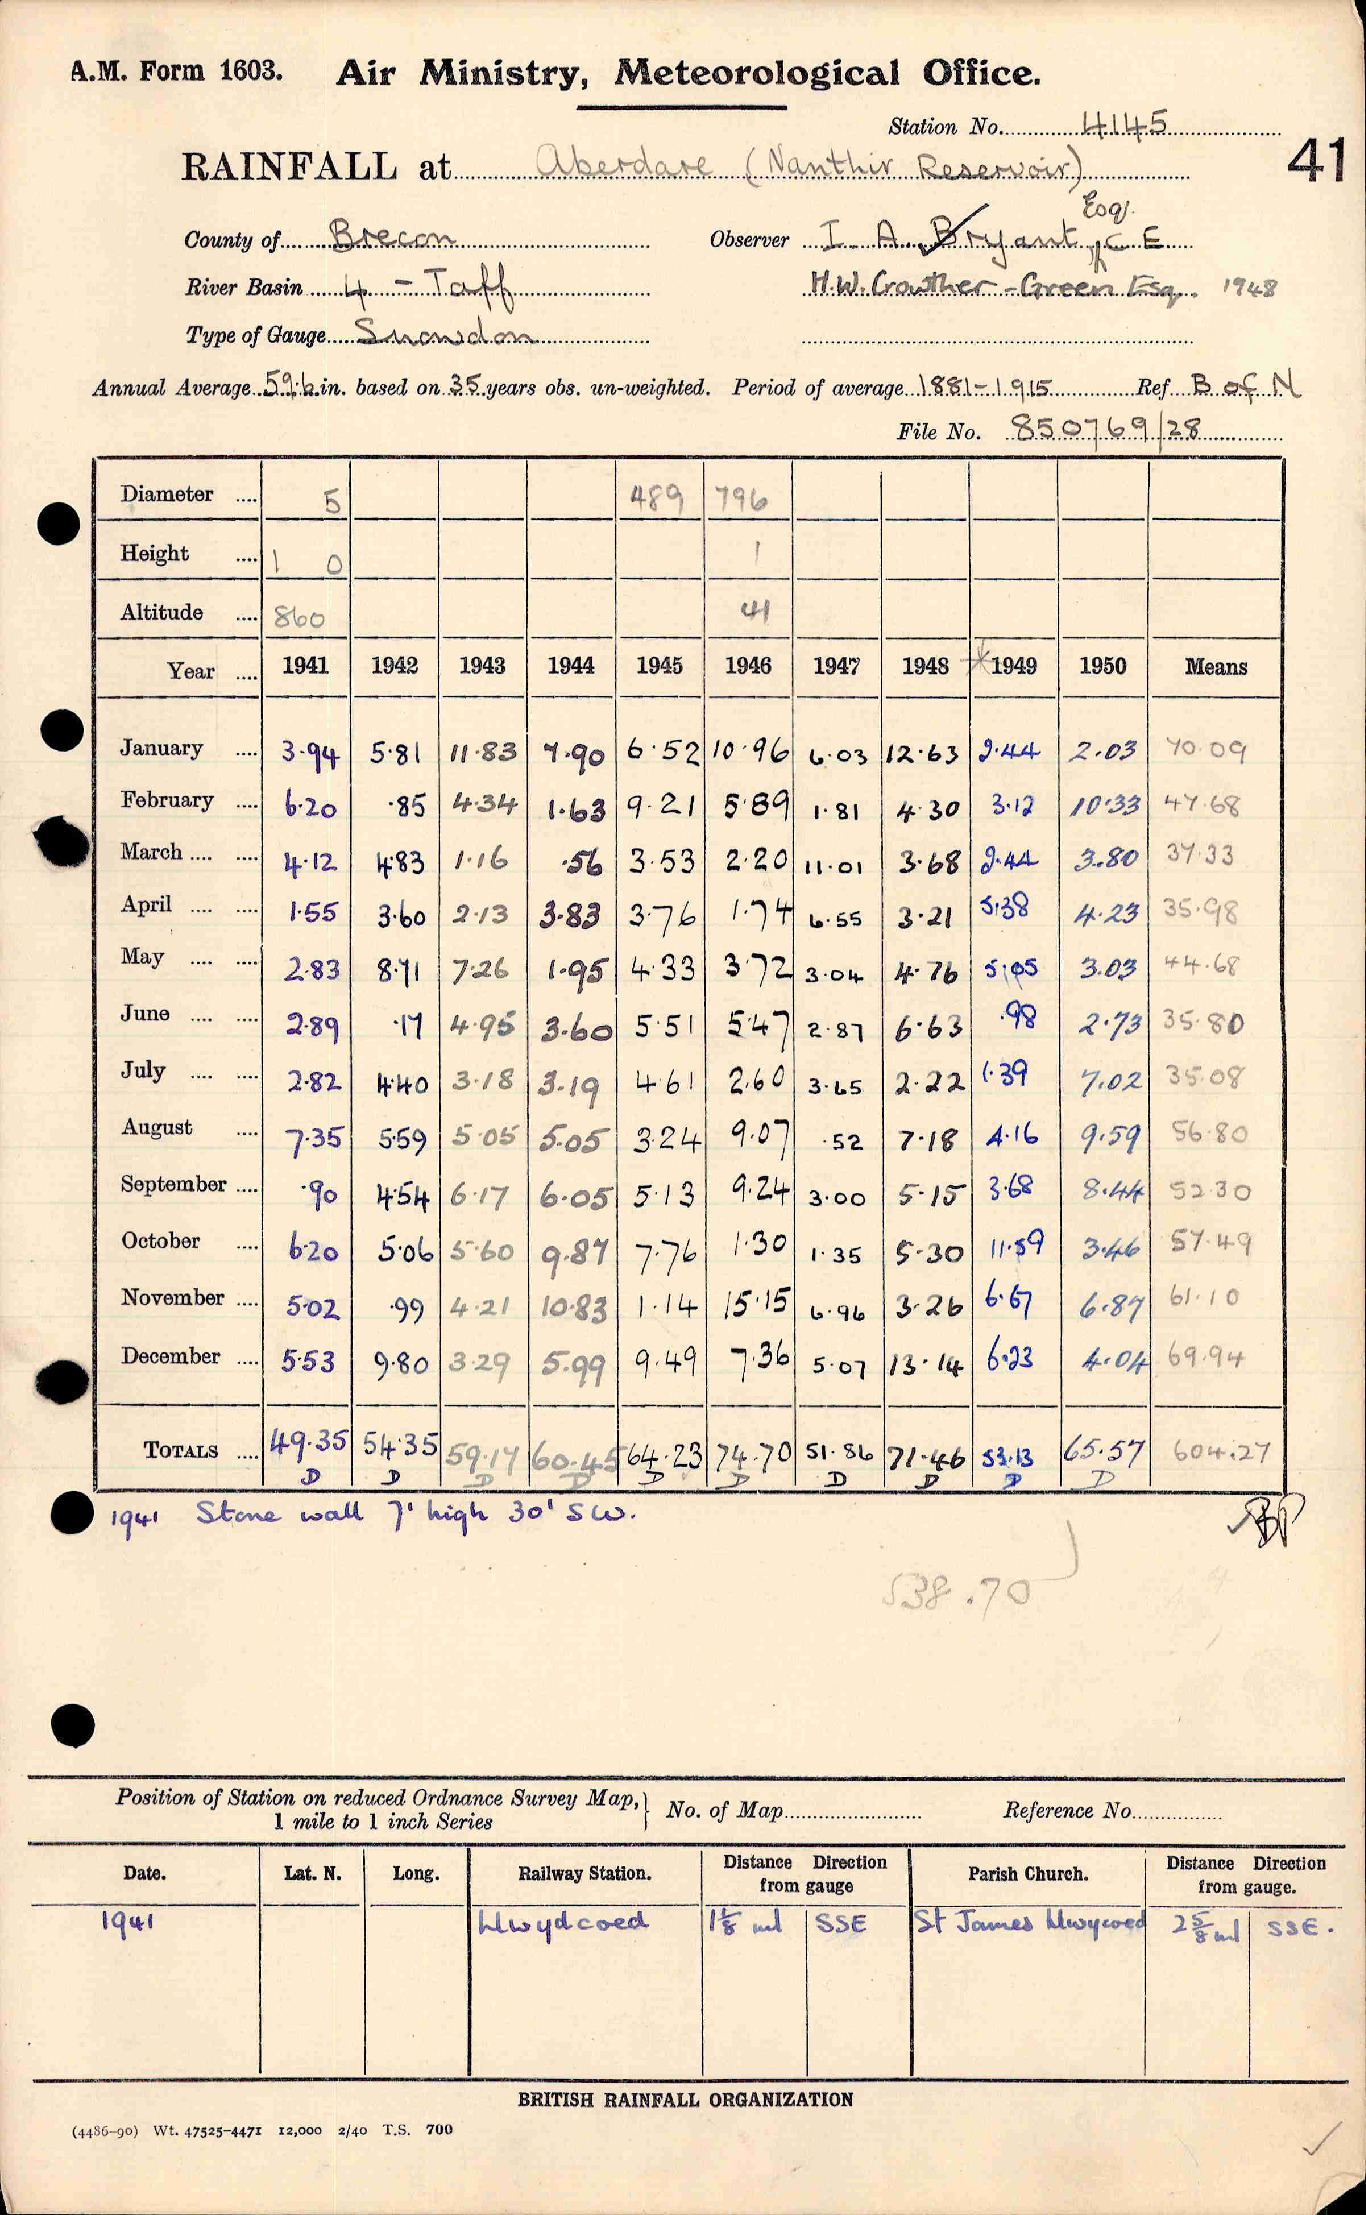 A.M. Form 1603. Air Ministry, Meteorological Office.
Station No. 4145
41
RAINFALL at Aberdare (Nanthir Reservoir)
Esq.
County of Brecon Observer I. A. Bryant C E
River Basin 4 - Taff H.W. Crowther-Green Esq. 1948
Type of Gauge Snowdon
Annual Average 59.6 in. based on 35 years obs. un-weighted. Period of average 1881-1915 Ref B of N
File No. 850769/28
Diameter .... 5 489 796
Height .... 1 0 1
Altitude .... 860 41
Year .... 1941 1942 1943 1944 1945 1946 1947 1948 *1949 1950 Means
January .... 3.94 5.81 11.83 7.90 6.52 10.96 6.03 12.63 2.44 2.03 70.09
February .... 6.20 .85 4.34 1.63 9.21 5.89 1.81 4.30 3.12 10.33 47.68
March .... .... 4.12 4.83 1.16 .56 3.53 2.20 11.01 3.68 2.44 3.80 37.33
April .... .... 1.55 3.60 2.13 3.83 3.76 1.74 6.55 3.21 5.38 4.23 35.98
May .... .... 2.83 8.71 7.26 1.95 4.33 3.72 3.04 4.76 5.05 3.03 44.68
June .... .... 2.89 .17 4.95 3.60 5.51 5.47 2.87 6.63 .98 2.73 35.80
July .... .... 2.82 4.40 3.18 3.19 4.61 2.60 3.65 2.22 1.39 7.02 35.08
August .... 7.35 5.59 5.05 5.05 3.24 9.07 .52 7.18 4.16 9.59 56.80
September .... .90 4.54 6.17 6.05 5.13 9.24 3.00 5.15 3.68 8.44 52.30
October .... 6.20 5.06 5.60 9.87 7.76 1.30 1.35 5.30 11.59 3.46 57.49
November .... 5.02 .99 4.21 10.83 1.14 15.15 6.96 3.26 6.67 6.87 61.10
December .... 5.53 9.80 3.29 5.99 9.49 7.36 5.07 13.14 6.23 4.04 69.94
TOTALS .... 49.35 54.35 59.17 60.45 64.23 74.70 51.86 71.46 53.13 65.57 604.27
D D D D D D D D D D
1941 Stone wall 7' high 30' SW.
538.70
Position of Station on reduced Ordnance Survey Map, } No. of Map Reference No.
1 mile to 1 inch Series
Date. Lat. N. Long. Railway Station. Distance from gauge Direction Parish Church. Distance from gauge. Direction
1941 Llwydcoed 1 5/8 ml SSE St James Llwycoed 2 5/8 ml SSE.
BRITISH RAINFALL ORGANIZATION
(4486-90) Wt. 47525-4471 12,000 2/40 T.S. 700